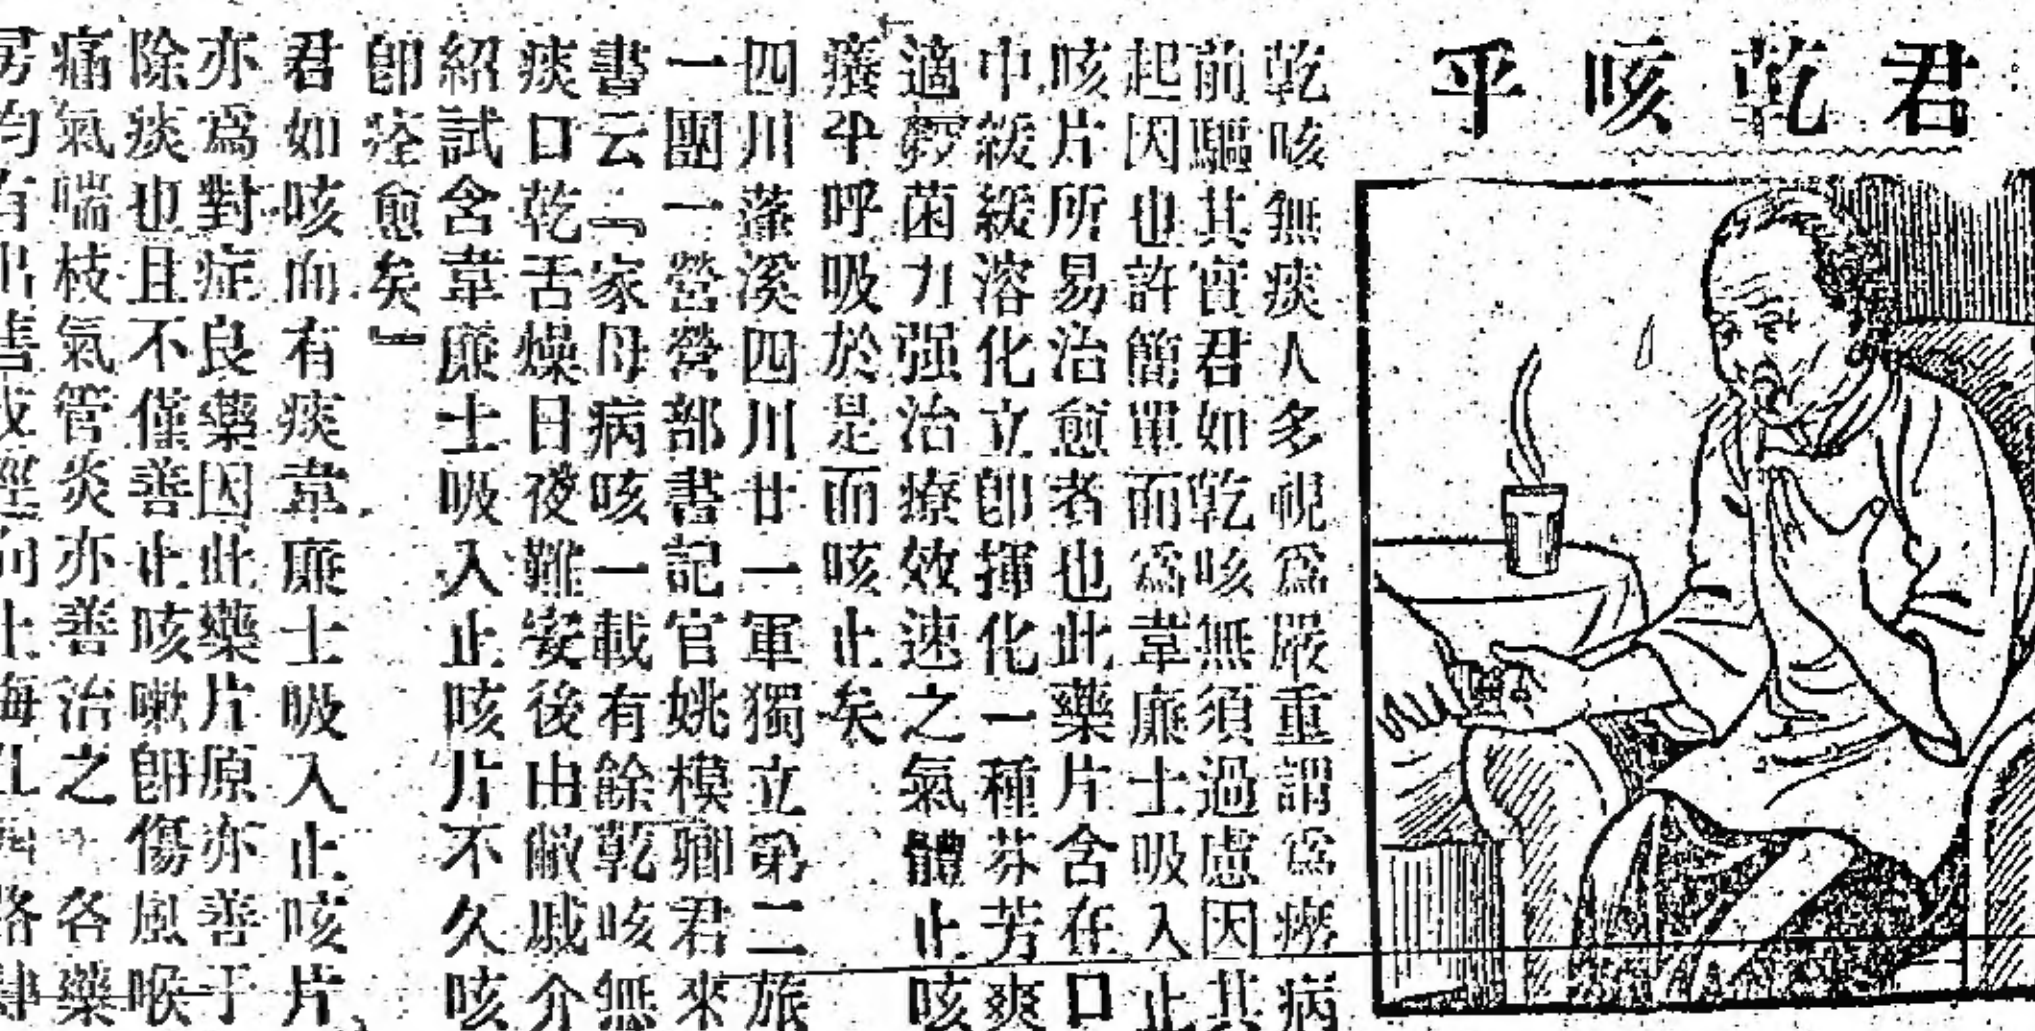 君乾咳乎
乾咳無痰人多視爲嚴重謂爲癆病
前驅其實君如乾咳無須過慮因其
起因也許簡單而爲韋廉士吸入止
咳片所易治愈者也此藥片含在口
中緩緩溶化立卽揮化一種芬芳爽
適殺菌力强治療效速之氣體止咳
癢平呼吸於是而咳止矣
四川蓬溪四川廿一軍獨立第二旅
一團一營營部書記官姚模卿君來
書云『家母病咳一載有餘乾咳無
痰口乾舌燥日夜難安後由敝戚介
紹試含韋廉士吸入止咳片不久咳
卽痊愈矣』
君如咳而有痰韋廉士吸入止咳片
亦爲對症良藥因此藥片原亦善于
除痰也且不僅善止咳嗽卽傷風喉
痛氣喘枝氣管炎亦善治之 各藥
房均有出售或逕向上海